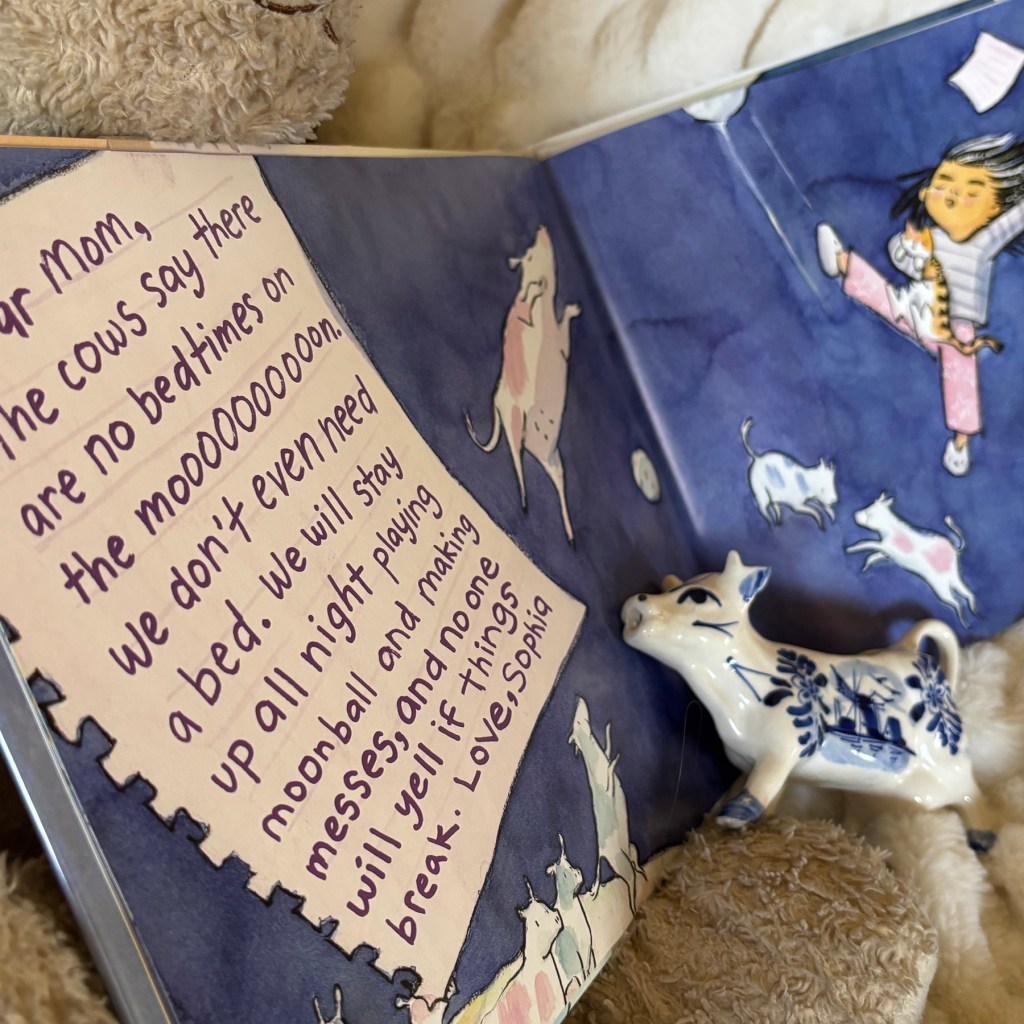 ar Mom,
The cows say there
are no bedtimes on
the moooooooooon.
We don't even need
a bed. We will stay
up all night playing
moonball and making
messes, and no one
will yell if things
break. Love, Sophia